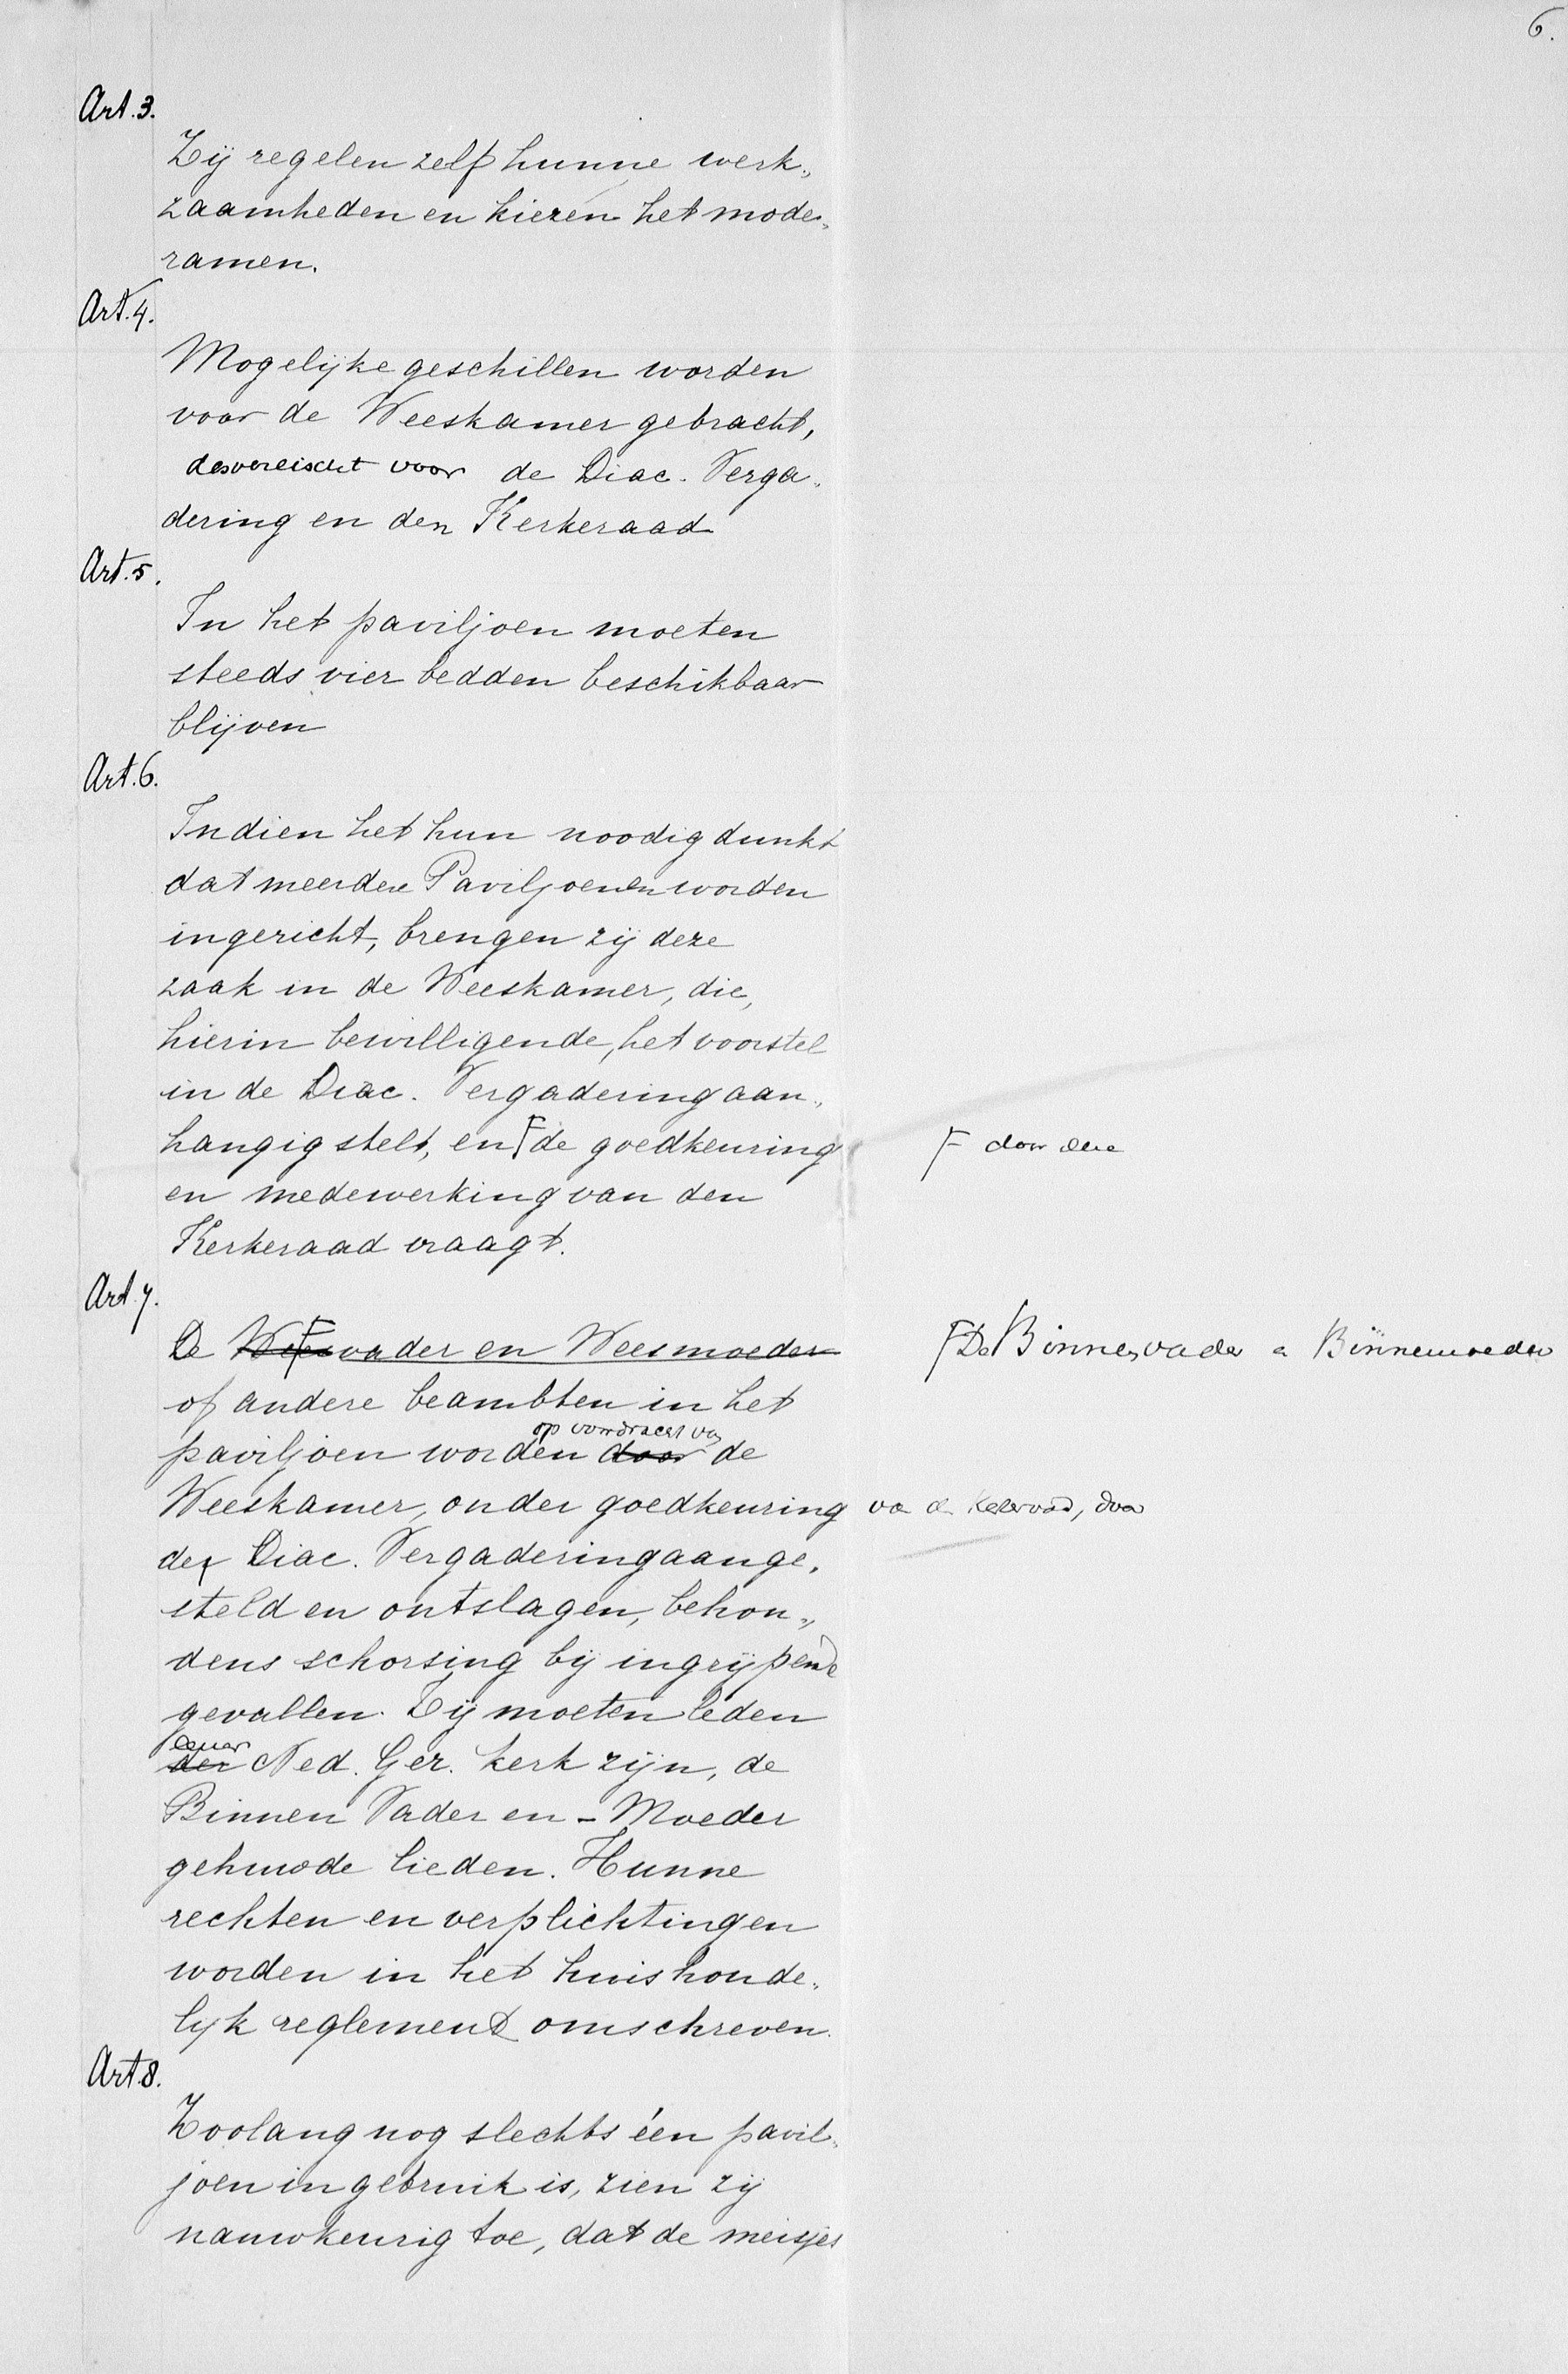 6.
Art. 3.
Zij regelen zelf hunne werk„
zaamheden en kiezen het mode„
ramen.
Art. 4.
Mogelijke geschillen worden
voor de Weeskamer gebracht,
desvereischt voor de Diac. Verga„
dering en den Kerkeraad
Art. 5.
In het paviljoen moeten
steeds vier bedden beschikbaar
blijven
Art. 6.
Indien het hun noodig dunkt
dat meerdere Paviljoenen worden
ingericht, brengen zij deze
zaak in de Weeskamer, die,
hierin bewilligende, het voorstel
in de Diac. Vergadering aan„
hangig stelt, en F de goedkeuring
F door deze
en medewerking van den
Kerkeraad vraagt.
Art. 7.
De Weesvader en Weesmoeder
F De Binnenvader en Binnenmoeder
of andere beambten in het
op voordracht van
paviljoen worden door de
Weeskamer, onder goedkeuring van den Kerkeraad, door
der Diac. Vergadering aange„
steld en ontslagen, behou„
dens schorsing bij ingrijpende
gevallen. Zij moeten leden
eener
der Ned. Ger. kerk zijn, de
Binnen Vader en - Moeder
gehuwde lieden. Hunne
rechten en verplichtingen
worden in het huishoude„
lijk reglement omschreven.
Art. 8.
Zoolang nog slechts éen pavil„
joen in gebruik is, zien zij
nauwkeurig toe, dat de meisjes